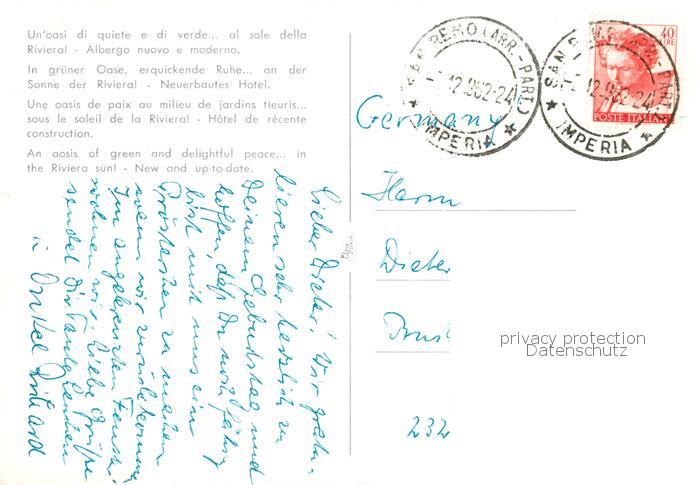 Un'oasi di quiete e di verde... al sole della
Riviera! - Albergo nuovo e moderno.
In grüner Oase, erquickende Ruhe... an der
Sonne der Riviera! - Neuerbautes Hotel.
Une oasis de paix au milieu de jardins fleuris...
sous le soleil de la Riviera! - Hôtel de récente
construction.
An aosis of green and delightful peace... in
the Riviera sun! - New and up-to-date.
Lieber Dieter! Wir gratu-
lieren sehr herzlich zu
Deinem Geburtstag und
hoffen, daß Du
bist mit uns ein
Prösterchen zu machen
wenn wir zurückkommen
Im angekreuzten Fenster
wohnen wir. Liebe Grüße
sendet Dir Tante
u Onkel Richard
SAN REMO (ARR.-PART.)
12.962-24
IMPERIA
SAN REMO (ARR.-PART.)
12.962-24
IMPERIA
40
LIRE
POSTE ITALIANE
Germany
Herrn
Dieter
232
privacy protection
Datenschutz